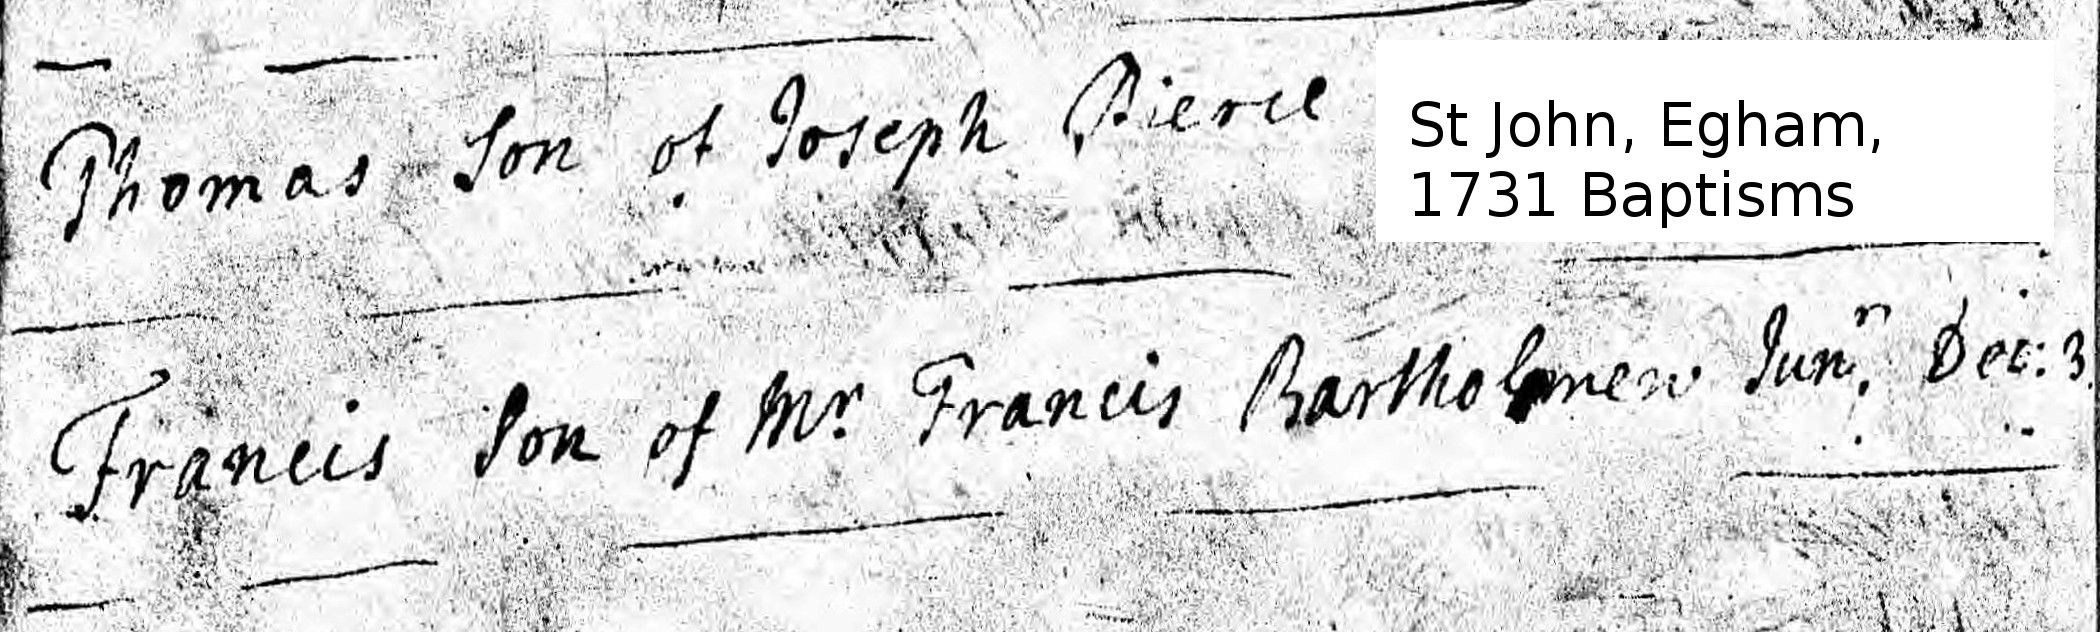 Thomas Son of Joseph Pierce
St John, Egham,
1731 Baptisms
Francis Son of Mr Francis Bartholmew Junr. Dec: 3